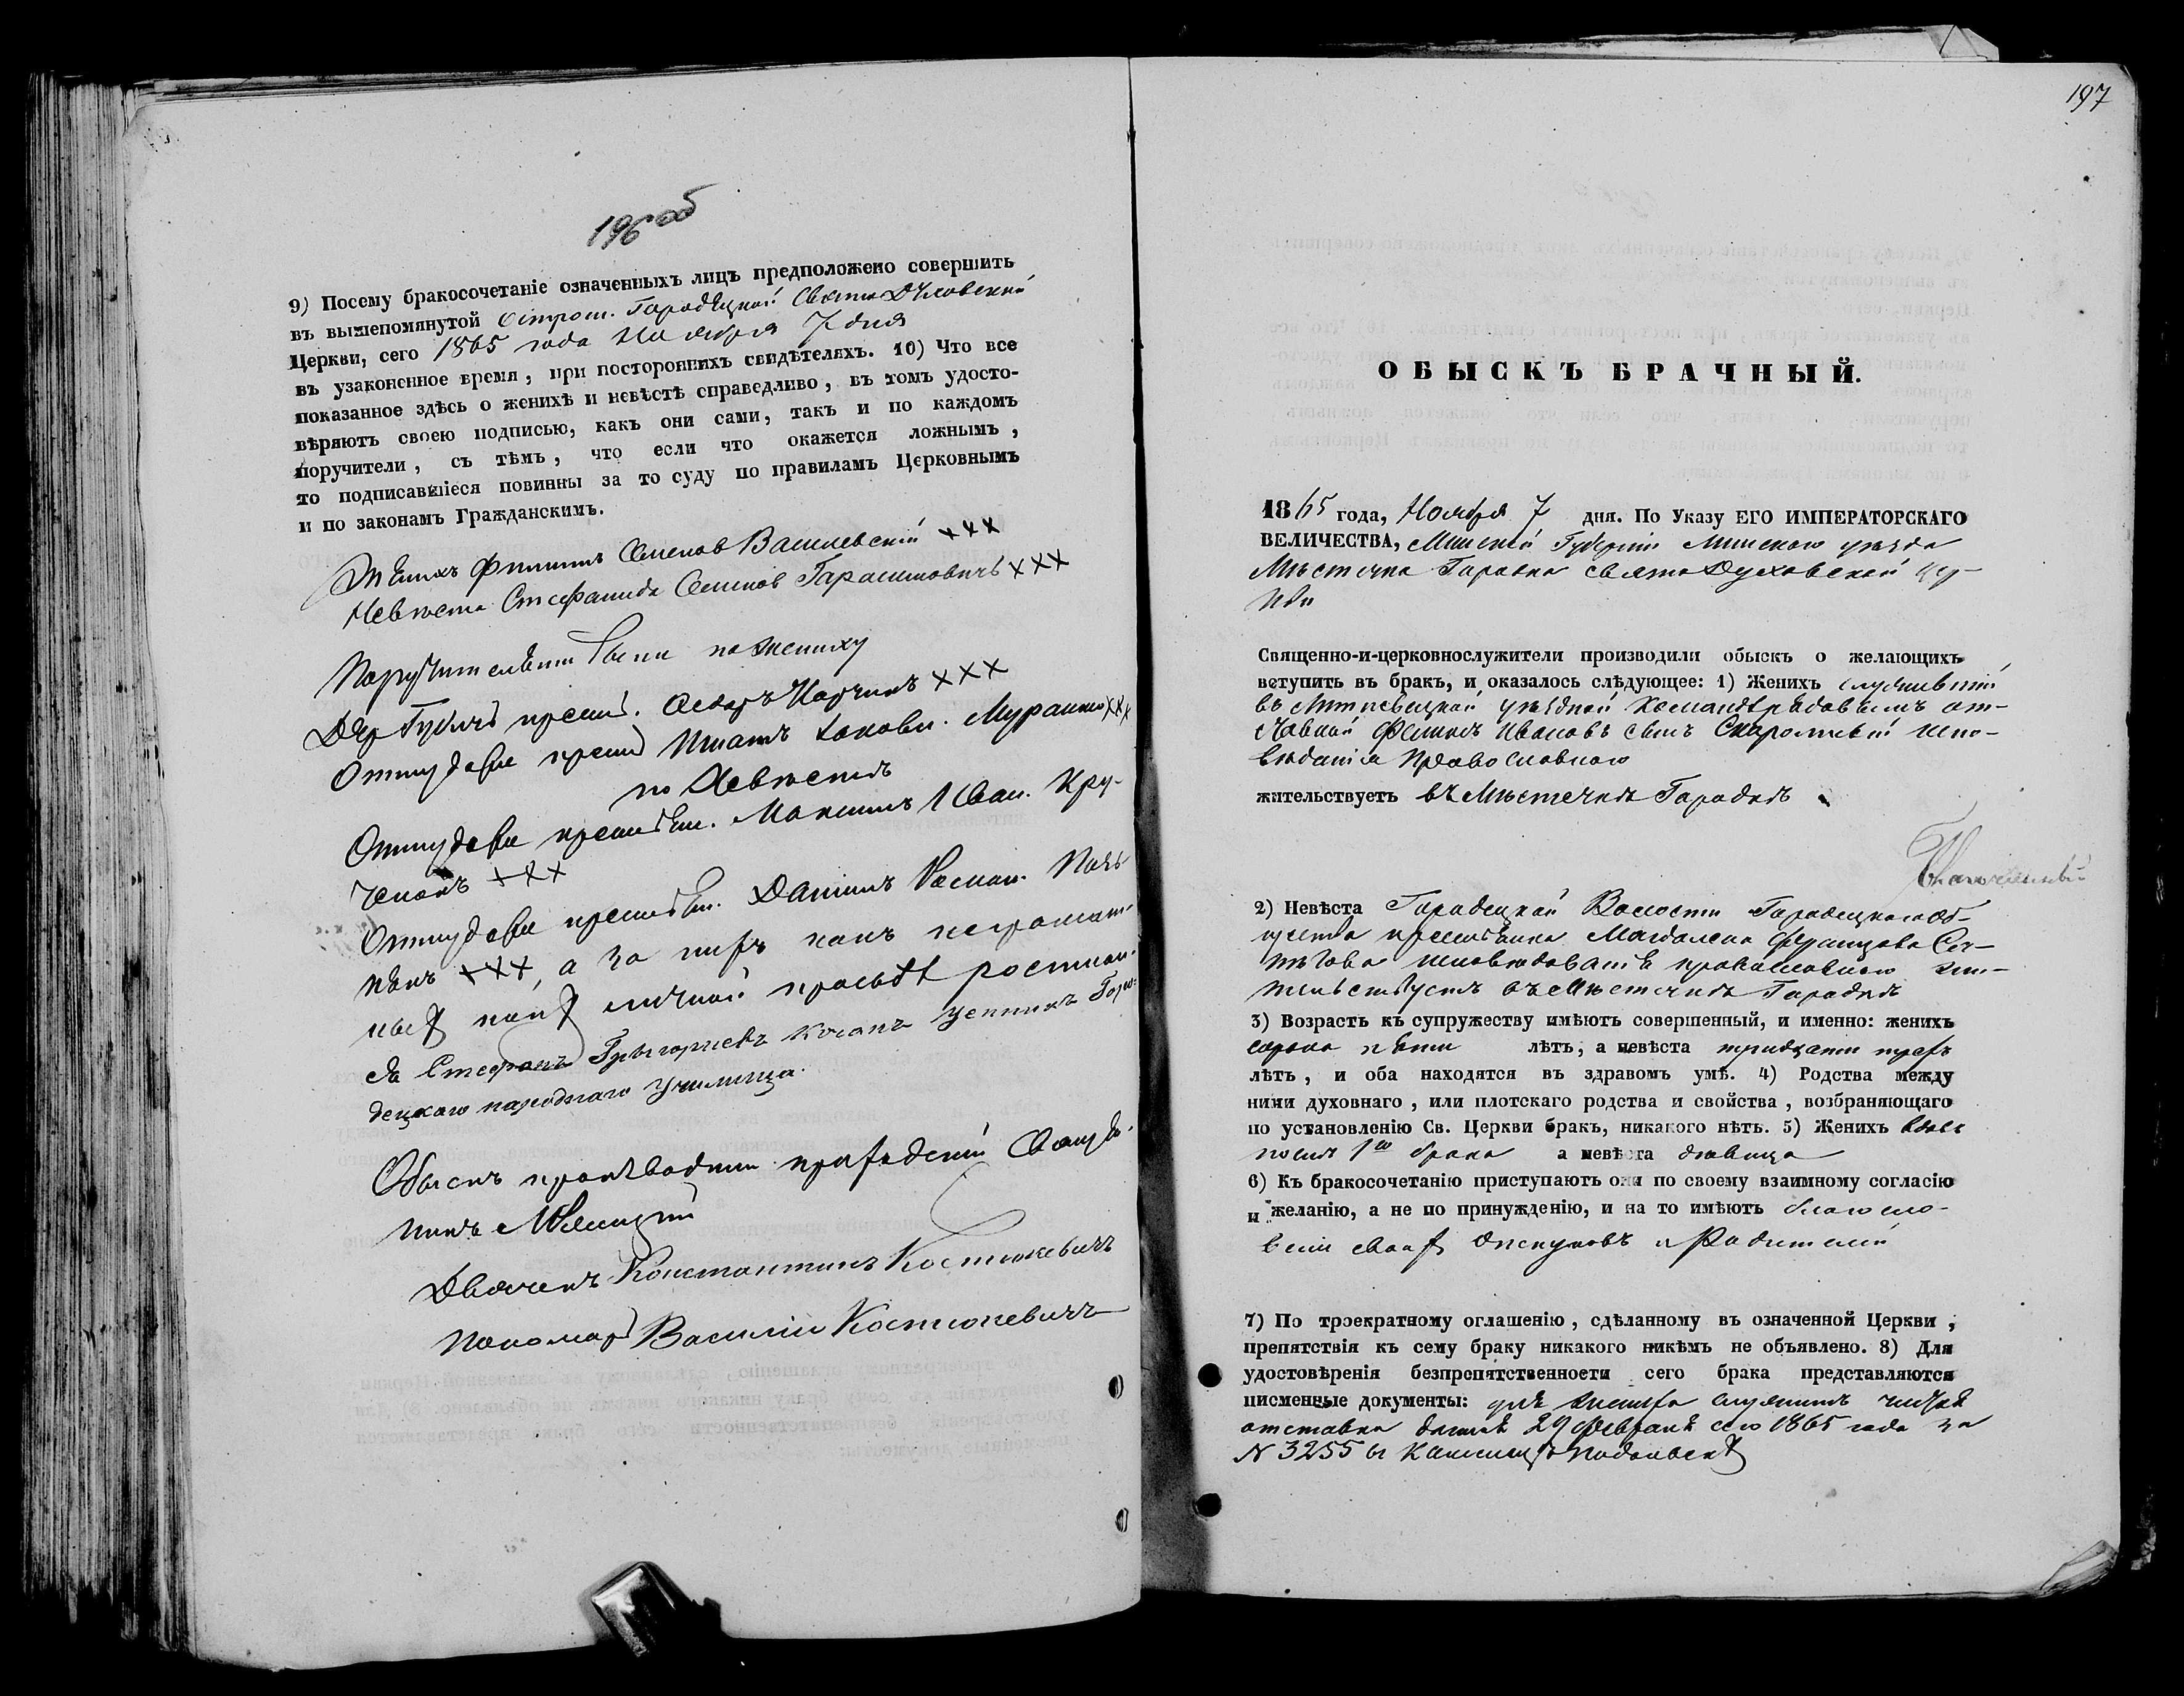 196 об
9) Посему бракосочетаніе означенныхъ лицъ предположено совершить
въ вышепомянутой Острош. Городецкой Свято Духовской
Церкви, сего 1865 года Ноября 7 дня
въ узаконенное время, при постороннихъ свидѣтеляхъ. 10) Что все
показанное здѣсь о женихѣ и невѣстѣ справедливо, въ томъ удосто-
вѣряютъ своею подписью, какъ они сами, такъ и по каждомъ
поручители, съ тѣмъ, что если что окажется ложнымъ,
то подписавшіеся повинны за то суду по правиламъ Церковнымъ
и по законамъ Гражданскимъ.
Женихъ Филипъ Семенов Василевскій ххх
Невѣста Стефанида Семенов Гарасимовичъ ххх
Поручители были по жениху
Дер. крест. ххх
крест Игнатъ Яковл. Мурашко ххх
по Невѣстѣ
крестьян. Максимъ Иван. Кру-
ченокъ ххх
крестьян. Даніилъ
ххх, а за ихъ какъ неграмот-
ныхъ по личной просьбѣ росписал-
ся Стефанъ Григорьевъ ученикъ Горо-
децкаго народнаго училища.
Обыскъ производили приходскій Священ-
никъ
Дьячекъ Константинъ Костюкевичъ
Пономарь Василій Костюкевичъ
197
ОБЫСКЪ БРАЧНЫЙ.
1865 года, Ноября 7 дня. По Указу ЕГО ИМПЕРАТОРСКАГО
ВЕЛИЧЕСТВА, Минской Губерніи Минскаго уѣзда
Мѣстечка Городка Свято Духовской Цер-
кви
Священно-и-церковнослужители производили обыскъ о желающихъ
вступить въ бракъ, и оказалось слѣдующее: 1) Женихъ служившій
въ уѣздной Командѣ рядовымъ от-
ставной Иванов сынъ испо-
вѣданія Православнаго
жительствуетъ въ Мѣстечкѣ Городкѣ
2) Невѣста Городецкой Волости Городецкаго об-
щества крестьянка Магдалена Францова
исповѣданія православнаго жи-
тельствуетъ въ Мѣстечкѣ Городкѣ
3) Возрастъ къ супружеству имѣютъ совершенный, и именно: женихъ
сорока пяти лѣтъ, а невѣста тридцати трехъ
лѣтъ, и оба находятся въ здравомъ умѣ. 4) Родства между
ними духовнаго, или плотскаго родства и свойства, возбраняющаго
по установленію Св. Церкви бракъ, никакого нѣтъ. 5) Женихъ вдовъ
послѣ 1го брака а невѣста дѣвица
6) Къ бракосочетанію приступаютъ они по своему взаимному согласію
и желанію, а не по принужденію, и на то имѣютъ благосло-
веніе своихъ опекуновъ и Родителей
7) По троекратному оглашенію, сдѣланному въ означенной Церкви,
препятствія къ сему браку никакого никѣмъ не объявлено. 8) Для
удостовѣренія безпрепятственности сего брака представляются
писменные документы: для жениха служитъ
отставка данная 29 Февраля сего 1865 года за
N 3255